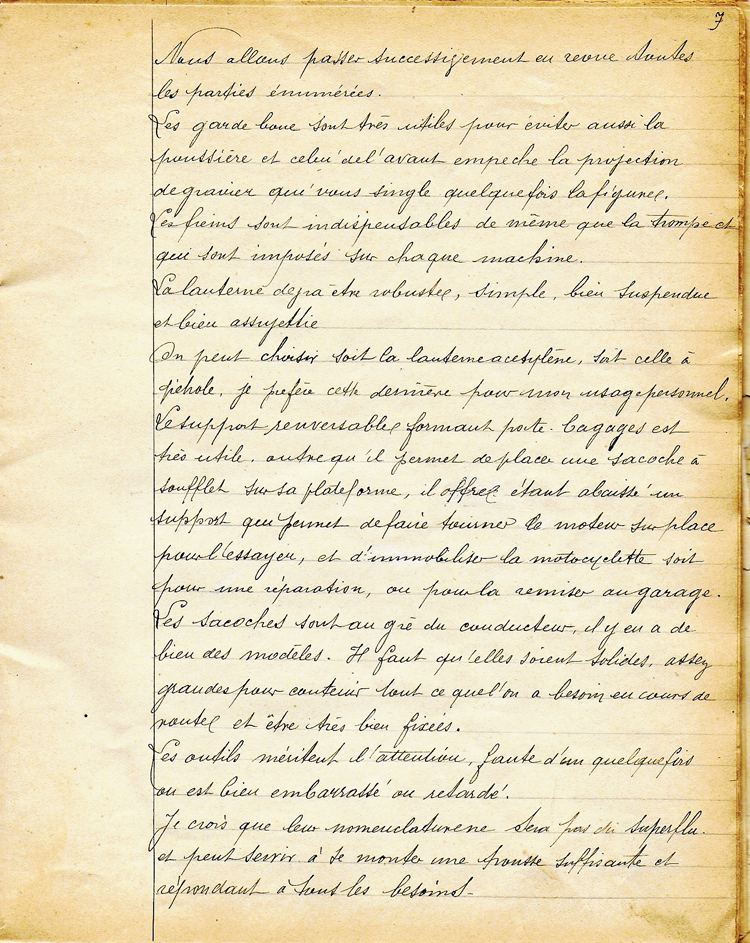 7
Nous allons passer successivement en revue toutes
les parties énumérées.
Les garde boue sont très utiles pour éviter aussi la
poussière et celui de l'avant empeche la projection
de gravier qui vous single quelquefois la figure.
Les freins sont indispensables de même que la trompe et
qui sont imposés sur chaque machine.
La lanterne devra être robuste, simple, bien suspendue
et bien assujettie
On peut choisir soit la lanterne acetylène, soit celle à
pétrole, je préfère cette dernière pour mon usage personnel.
Le support renversable formant porte-bagages est
très utile. outre qu'il permet de placer une sacoche à
soufflet sur sa plateforme, il offre étant abaissé un
support qui permet de faire tourner le moteur sur place
pour l'essayer, et d'immobiliser la motocyclette soit
pour une réparation, ou pour la remiser au garage.
Les sacoches sont au gré du conducteur, il y en a de
bien des modèles. Il faut qu'elles soient solides, assez
grandes pour contenir tout ce que l'on a besoin en cours de
route et être très bien fixées.
Les outils méritent l'attention, faute d'un quelquefois
on est bien embarrassé ou retardé.
Je crois que leur nomenclature ne sera pas du superflu.
et peut servir à se monter une trousse suffisante et
répondant à tous les besoins.